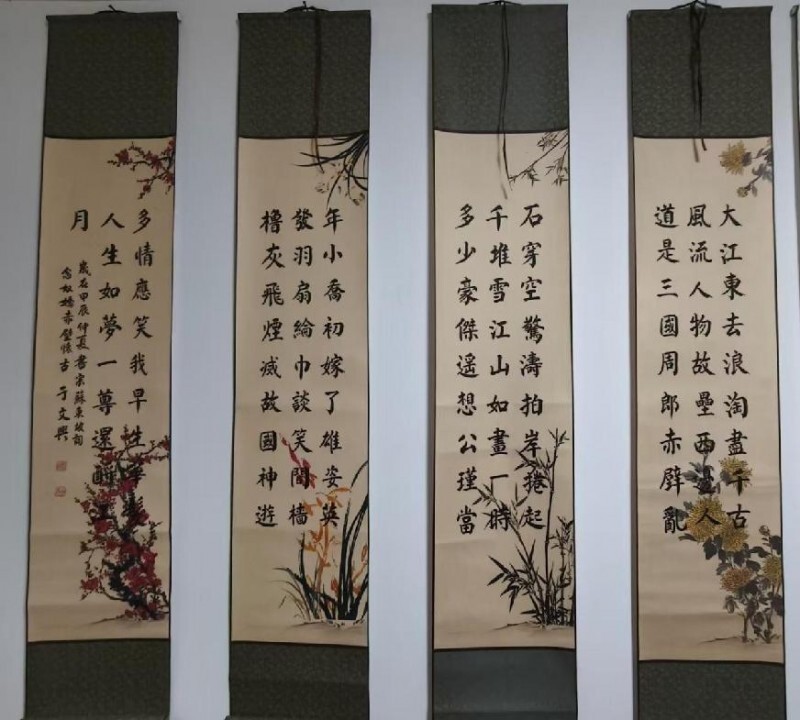 大江東去浪淘盡千古
風流人物故壘西邊人
道是三國周郎赤壁亂
石穿空驚濤拍岸捲起
千堆雪江山如畫一時
多少豪傑遥想公瑾當
年小喬初嫁了雄姿英
發羽扇綸巾談笑間檣
櫓灰飛煙滅故國神遊
多情應笑我早生華髮
人生如夢一尊還酹江
月
歲在甲辰仲夏書宋蘇東坡詞
念奴嬌赤壁懷古 于文興